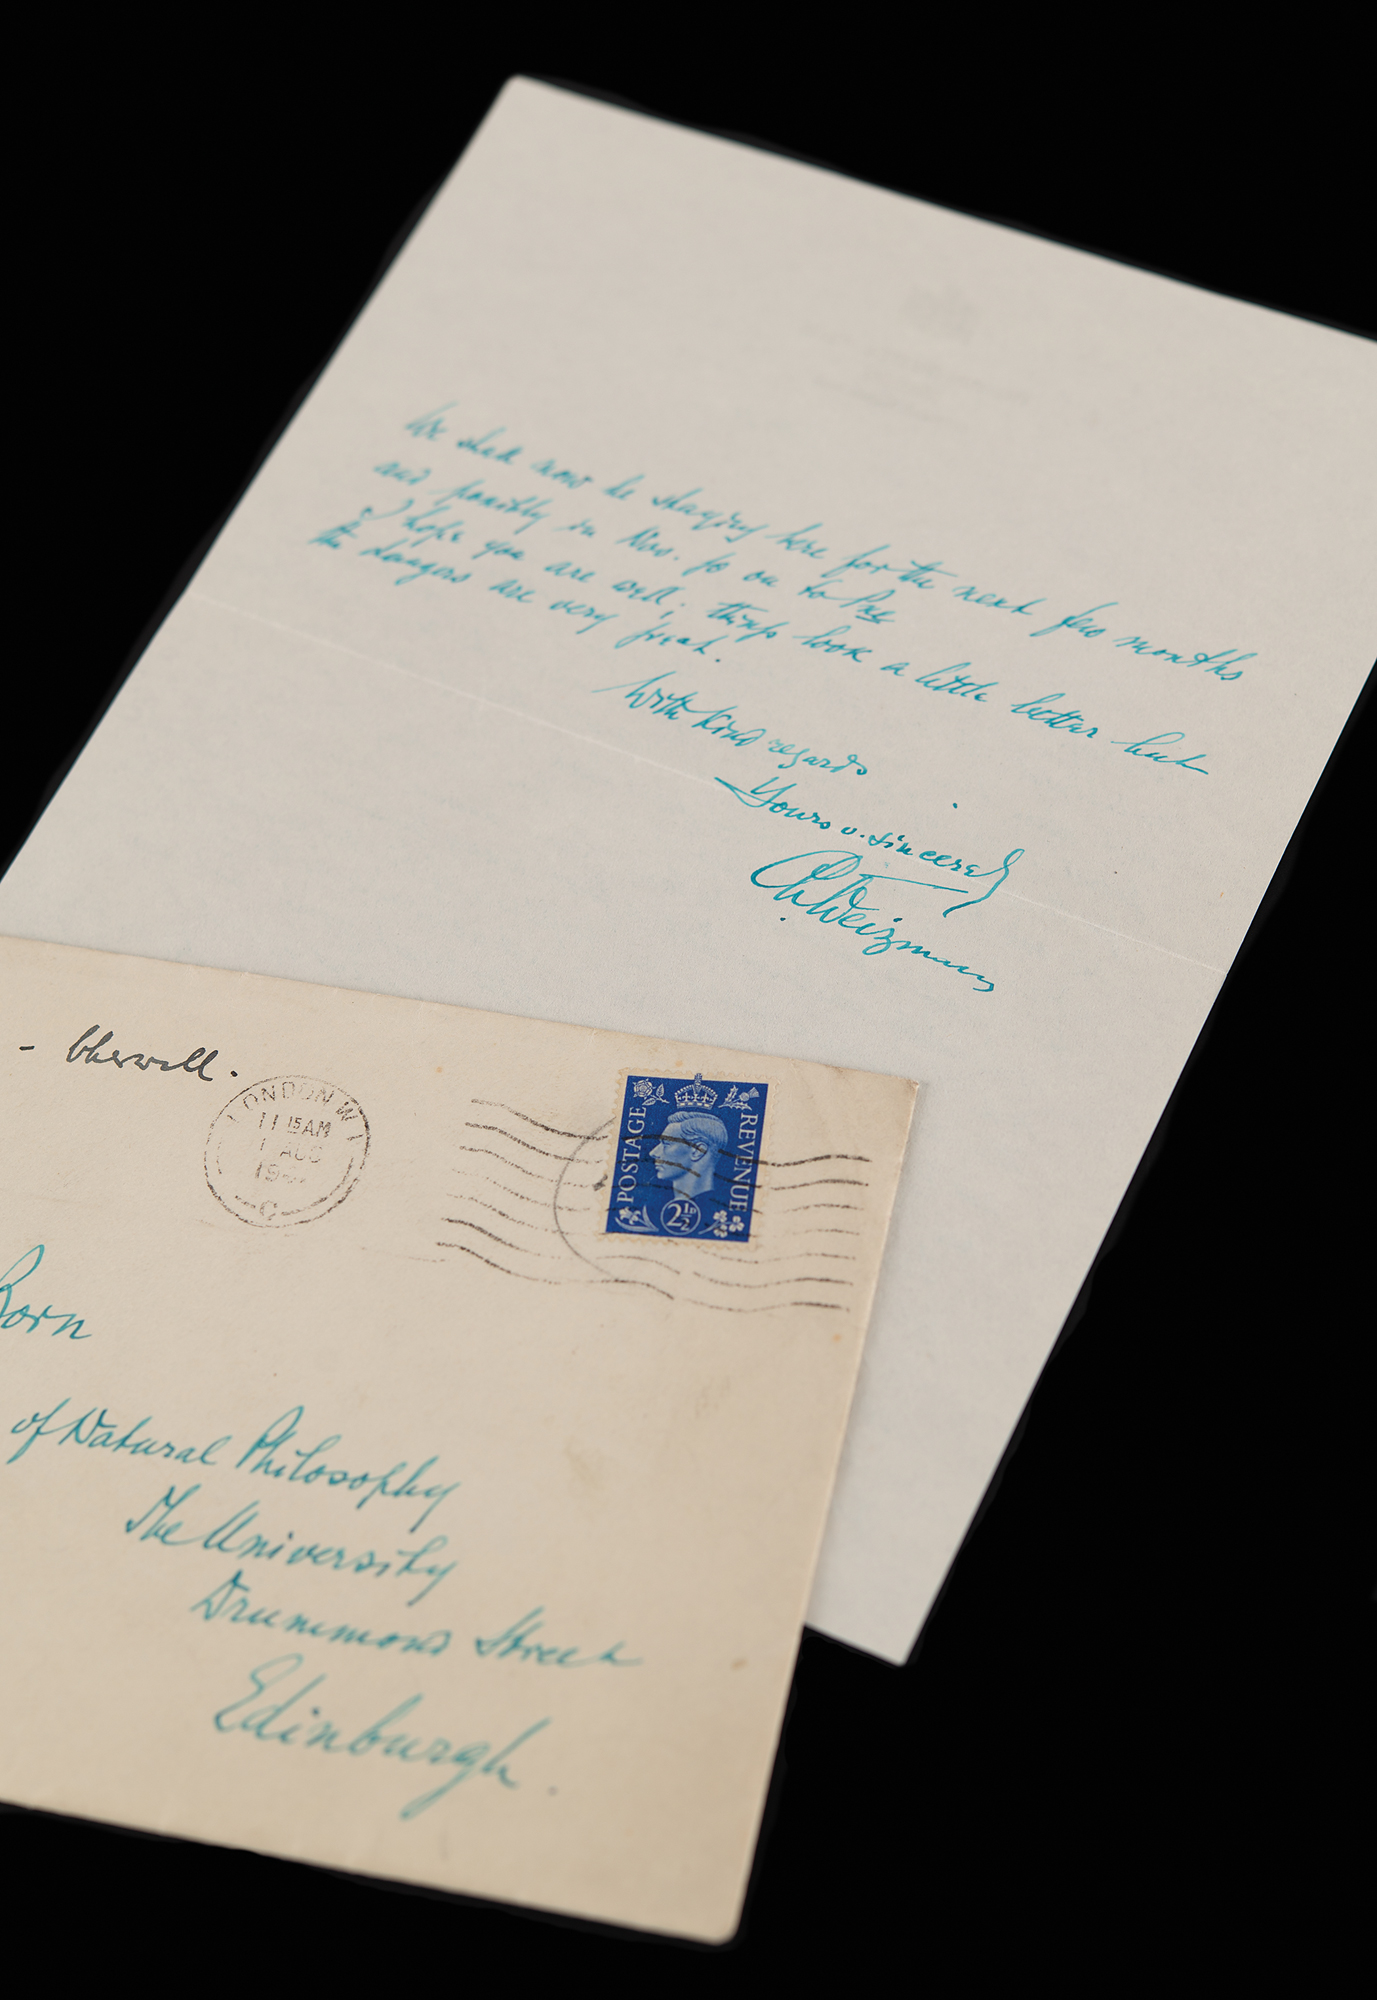 We shall now be staying here for the next few months
and possibly in Nov. go on to Pal
I hope you are well; things look a little better but
the dangers are very great.
With kind regards
Yours v. sincerely
Ch. Weizmann
- Cherwell.
LONDON W 1
11 15 AM
1 AUG
19
C
POSTAGE
REVENUE
2½D
Born
of Natural Philosophy
The University
Drummond Street
Edinburgh.